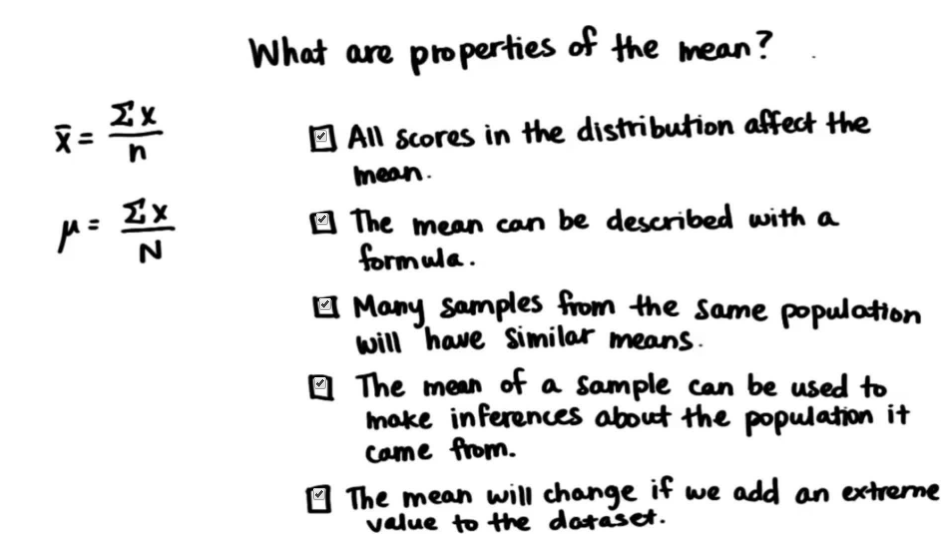 What are properties of the mean?
x̄ = Σx / n
μ = Σx / N
☑ All scores in the distribution affect the
mean.
☑ The mean can be described with a
formula.
☑ Many samples from the same population
will have similar means.
☑ The mean of a sample can be used to
make inferences about the population it
came from.
☑ The mean will change if we add an extreme
value to the dataset.